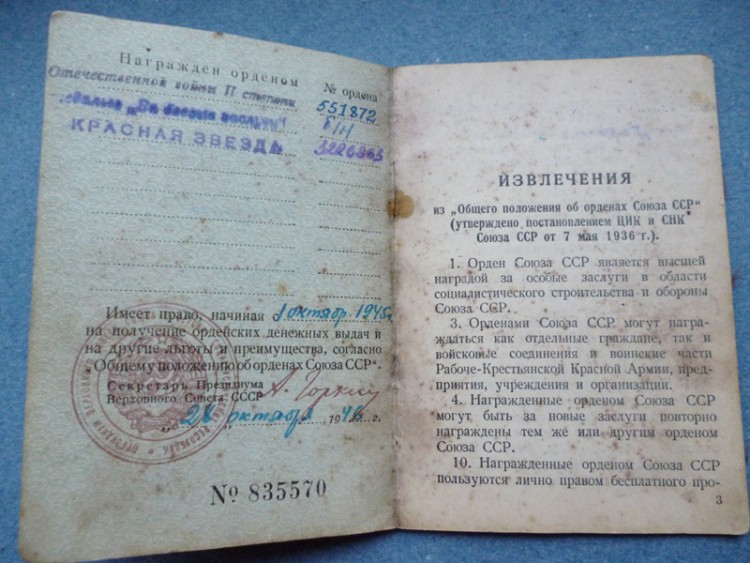 Награжден орденом № ордена
Отечественной войны II степени 551872
медалью „За боевые заслуги“ б/н
КРАСНАЯ ЗВЕЗДА
Имеет право, начиная 1 октябр. 1945г.
на получение орденских денежных выдач и
на другие льготы и преимущества, согласно
„Общему положению об орденах Союза ССР“.
Секретарь Президиума
Верховного Совета СССР А. Горкин
„28“ октября 1946 г.
№ 835570
ИЗВЛЕЧЕНИЯ
из „Общего положения об орденах Союза ССР“
(утверждено постановлением ЦИК и СНК
Союза ССР от 7 мая 1936 г.).
1. Орден Союза ССР является высшей
наградой за особые заслуги в области
социалистического строительства и обороны
Союза ССР.
3. Орденами Союза ССР могут награ-
ждаться как отдельные граждане, так и
войсковые соединения и воинские части
Рабоче-Крестьянской Красной Армии, пред-
приятия, учреждения и организации.
4. Награжденные орденом Союза ССР
могут быть за новые заслуги повторно
награждены тем же или другим орденом
Союза ССР.
10. Награжденные орденом Союза ССР
пользуются лично правом бесплатного про-
3